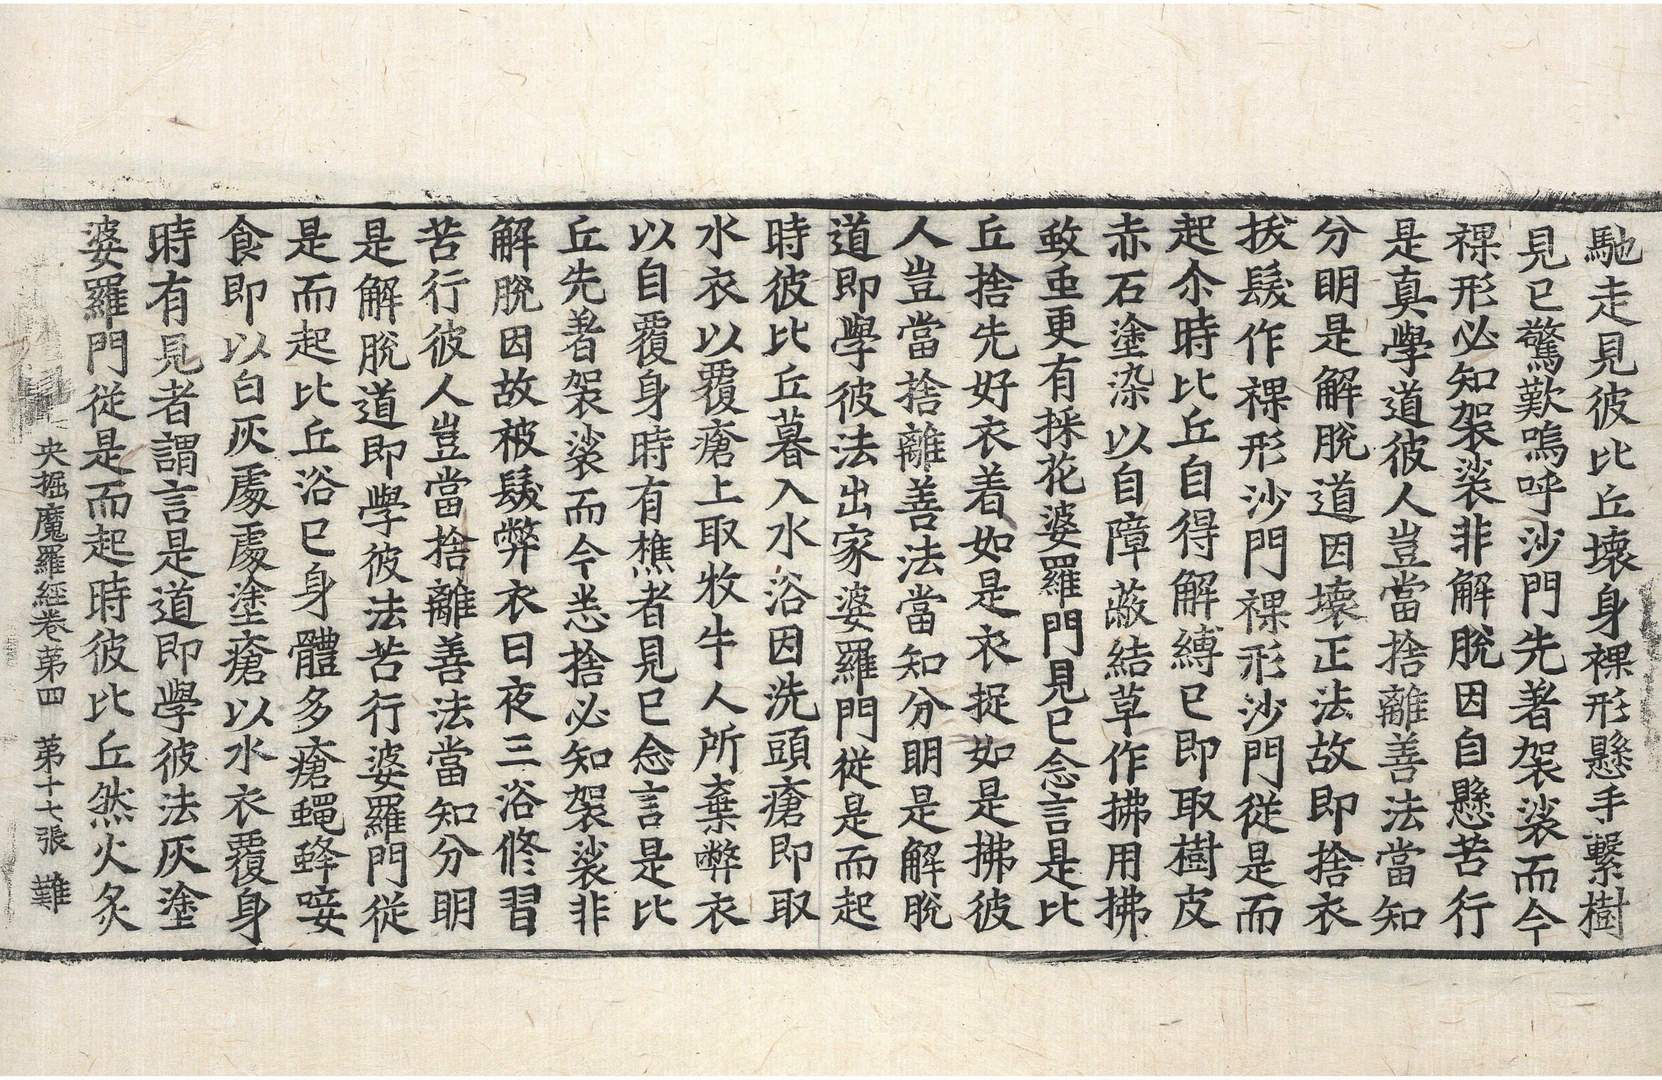 馳走見彼比丘壞身裸形懸手繫樹
見已驚歎嗚呼沙門先著袈裟而今
裸形必知袈裟非解脫因自懸苦行
是真學道彼人豈當捨離善法當知
分明是解脫道因壞正法故即捨衣
拔髮作裸形沙門裸形沙門從是而
起尒時比丘自得解縛已即取樹皮
赤石塗染以自障蔽結草作拂用拂
蚊䖟更有採花婆羅門見已念言是比
丘捨先好衣着如是衣捉如是拂彼
人豈當捨離善法當知分明是解脫
道即學彼法出家婆羅門從是而起
時彼比丘暮入水浴因洗頭瘡即取
水衣以覆瘡上取牧牛人所棄弊衣
以自覆身時有樵者見已念言是比
丘先著袈裟而今悉捨必知袈裟非
解脫因故被髮弊衣日夜三浴修習
苦行彼人豈當捨離善法當知分明
是解脫道即學彼法苦行婆羅門從
是而起比丘浴已身體多瘡蠅蜂唼
食即以白灰處處塗瘡以水衣覆身
時有見者謂言是道即學彼法灰塗
婆羅門從是而起時彼比丘然火炙
央掘魔羅經卷第四 第十七張 難